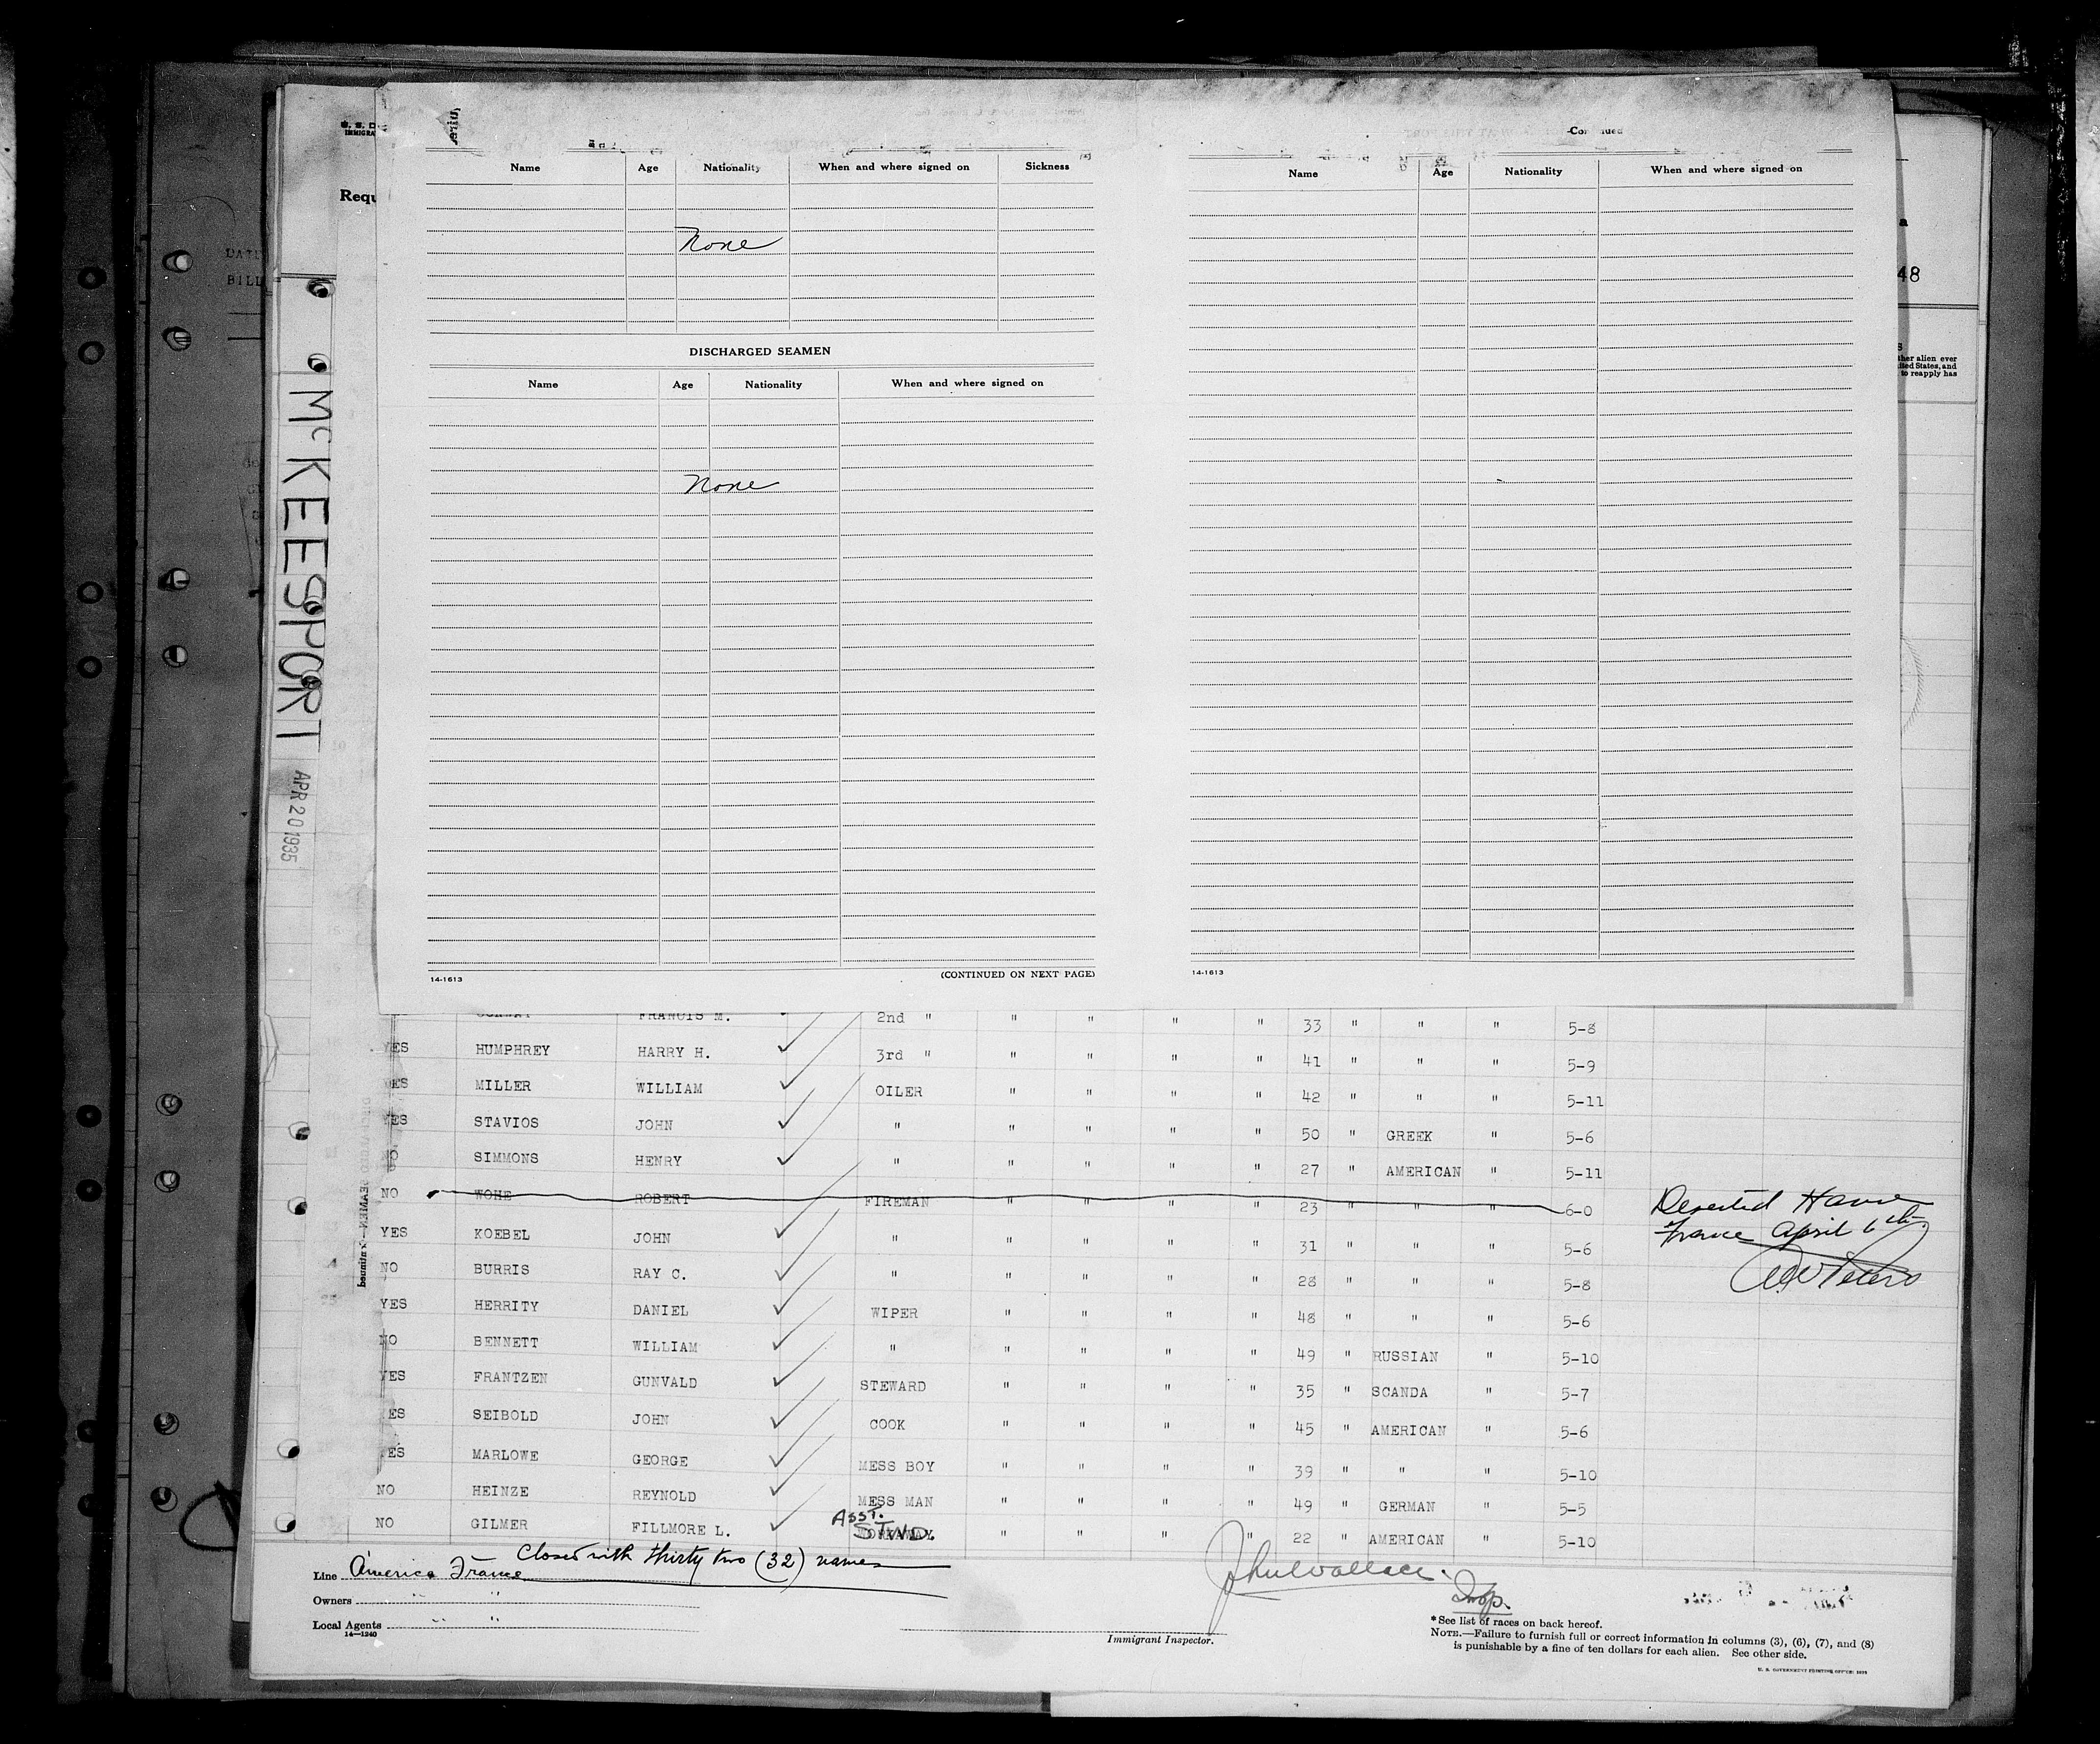 Continued
Name Age Nationality When and where signed on Sickness
None
DISCHARGED SEAMEN
Name Age Nationality When and where signed on
None
14-1613 (CONTINUED ON NEXT PAGE)
Name Age Nationality When and where signed on
14-1613
Requ
DATE
BILL
McKEESPORT
APR 20 1935
48
ther alien ever
ited States, and
to reapply has
FRANCIS M. 2nd " " " " " 33 " " " 5-8
YES HUMPHREY HARRY H. 3rd " " " " " 41 " " " 5-9
YES MILLER WILLIAM OILER " " " " 42 " " " 5-11
YES STAVIOS JOHN " " " " " 50 " GREEK " 5-6
NO SIMMONS HENRY " " " " " 27 " AMERICAN " 5-11
NO WOHE ROBERT FIREMAN " " " " 23 " " " 6-0 Deserted Havre
France April 6th
YES KOEBEL JOHN " " " " " 31 " " " 5-6
NO BURRIS RAY C. " " " " " 28 " " " 5-8
YES HERRITY DANIEL WIPER " " " " 48 " " " 5-6
NO BENNETT WILLIAM " " " " " 49 " RUSSIAN " 5-10
YES FRANTZEN GUNVALD STEWARD " " " " 35 " SCANDA " 5-7
YES SEIBOLD JOHN COOK " " " " 45 " AMERICAN " 5-6
YES MARLOWE GEORGE MESS BOY " " " " 39 " " " 5-10
NO HEINZE REYNOLD MESS MAN " " " " 49 " GERMAN " 5-5
NO GILMER FILLMORE L. ASST. STWD. " " " " 22 " AMERICAN " 5-10
Closed with thirty two (32) names
Line America France
Owners " "
Local Agents " "
14-1240
John Wallace
Insp.
Immigrant Inspector.
*See list of races on back hereof.
NOTE.—Failure to furnish full or correct information in columns (3), (6), (7), and (8)
is punishable by a fine of ten dollars for each alien. See other side.